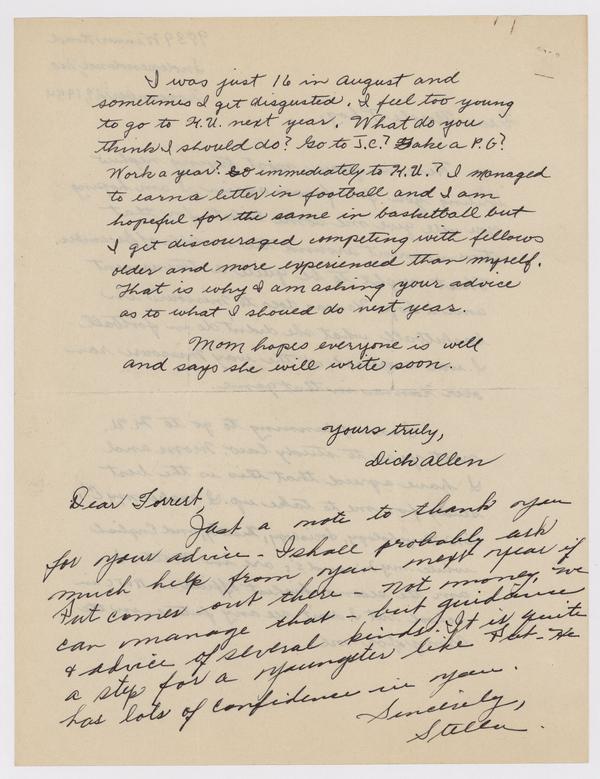 I was just 16 in August and
sometimes I get disgusted. I feel too young
to go to K.U. next year. What do you
think I should do? Go to J.C.? Take a P.G?
Work a year? Go immediately to K.U.? I managed
to earn a letter in football and I am
hopeful for the same in basketball but
I get discouraged competing with fellows
older and more experienced than myself.
That is why I am asking your advice
as to what I should do next year.
Mom hopes everyone is well
and says she will write soon.
Yours truly,
Dick Allen
Dear Forrest,
Just a note to thank you
for your advice - I shall probably ask
much help from you next year if
comes out there - not money, we
can manage that - but guidance
& advice of several kinds. It is quite
a step for a youngster like - He
has lots of confidence in you.
Sincerely,
Stella.